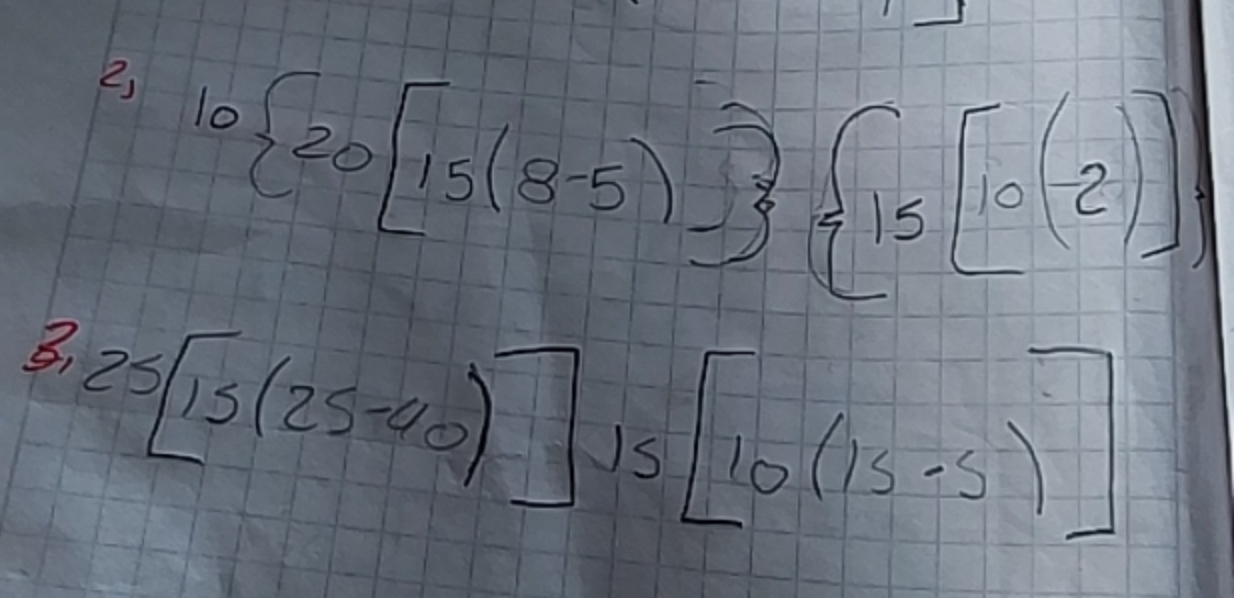 2, 10{20[15(8-5)]}{15[10(-2)]}
3, 25[15(25-40)]15[10(15-5)]